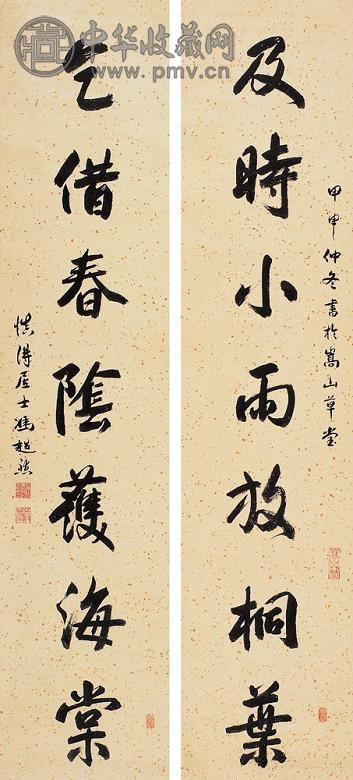 中华收藏网
www.pmv.cn
甲申仲冬書於嵩山草堂
及時小雨放桐葉
乞借春陰護海棠
慎得居士馮超然